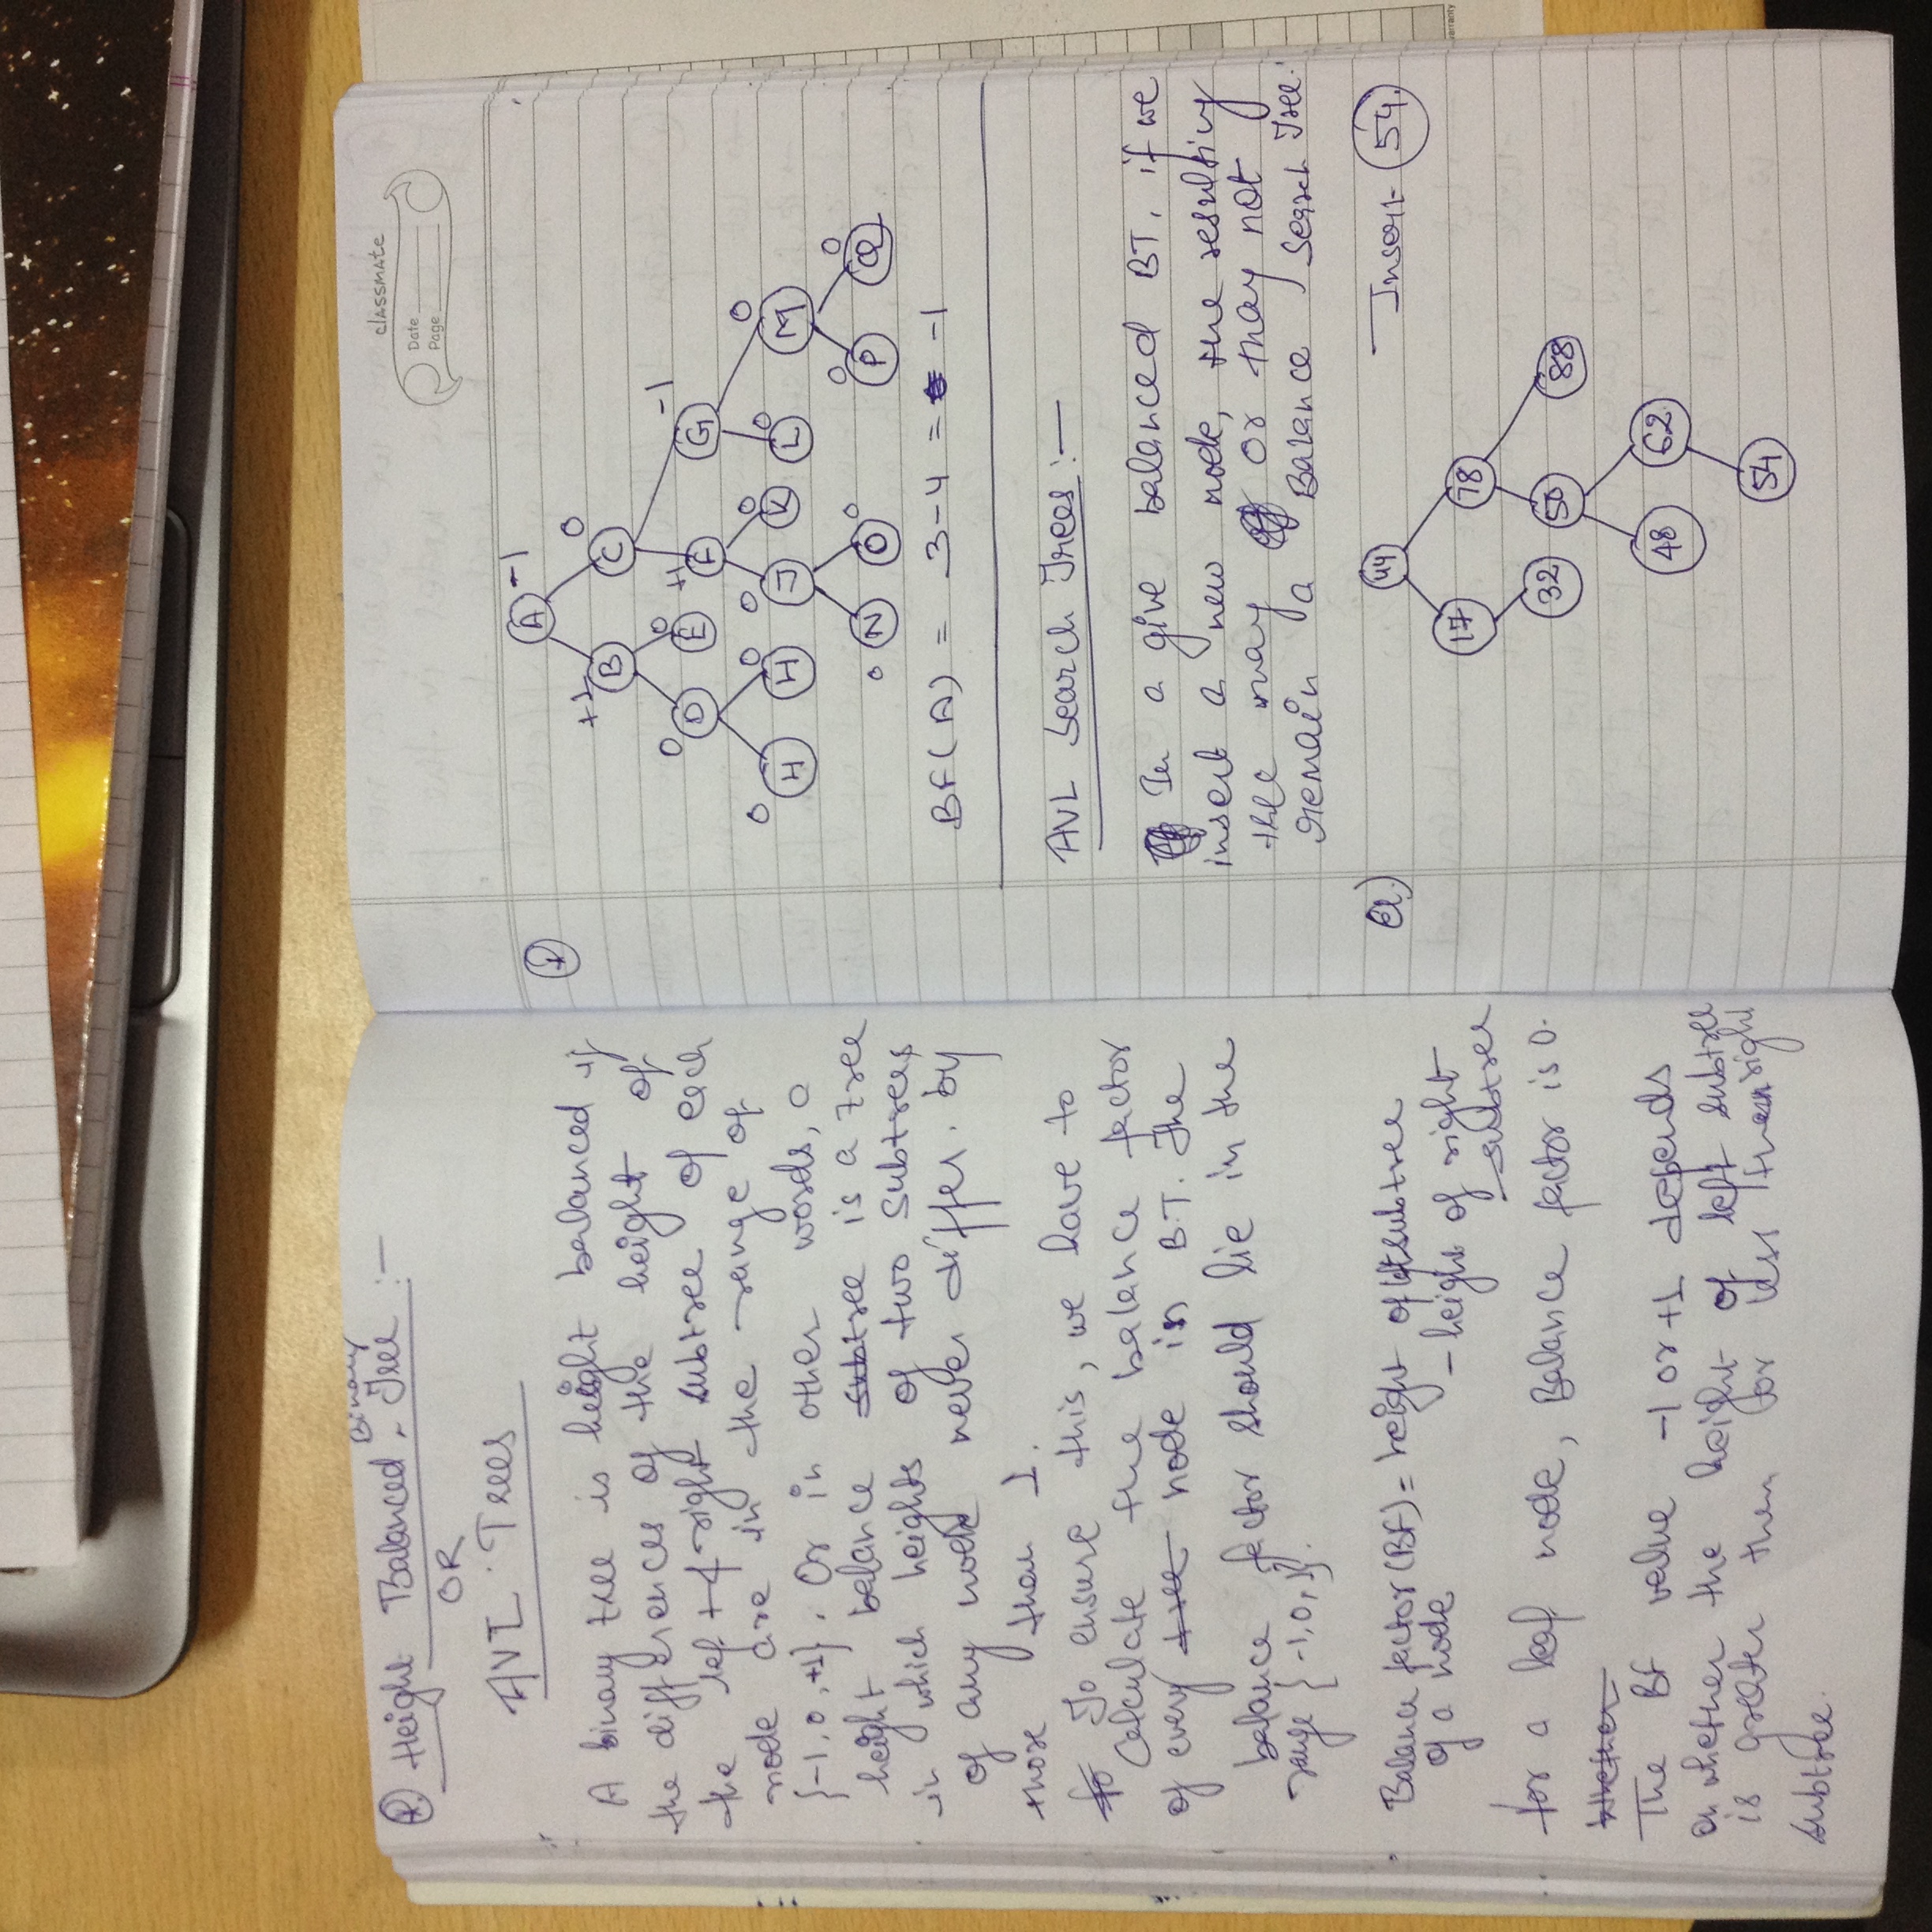 * Height Balanced Binary Tree :-
OR
AVL Trees
A binary tree is height balanced if
the differences of the height of
the left + right subtree of each
node are in the range of
{-1, 0, +1}. Or in other words, a
height balance subtree is a tree
in which heights of two subtrees
of any node never differ by
more than 1.
To ensure this, we have to
calculate the balance factor
of every tree node in B.T. The
balance factor should lie in the
range {-1, 0, 1}.
Balance factor (BF) = height of left subtree
of a node - height of right
subtree
for a leaf node, Balance factor is 0.
The BF value -1 or +1 depends
on whether the height of left subtree
is greater then or less than right
subtree.
classmate
Date
Page
A -1
+1 B C 0
0 D E 0 +1 F G -1
0 H H 0 0 J K 0 L 0 M 0
0 N O 0 0 P Q 0
BF(A) = 3-4 = -1
AVL Search Trees :-
In a give balanced BT, if we
insert a new node, the resulting
tree may or may not
remain a Balance Search Tree.
a.)
Insert 54.
44
17 78
32 50 88
48 62
54
warranty